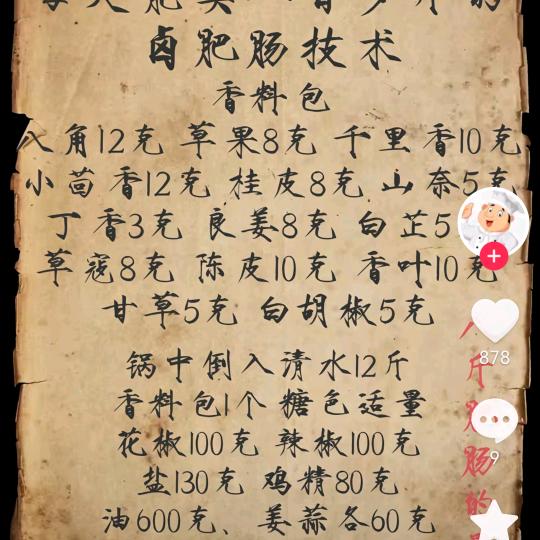 卤肥肠技术
香料包
八角12克 草果8克 千里香10克
小茴香12克 桂皮8克 山奈5克
丁香3克 良姜8克 白芷5
草寇8克 陈皮10克 香叶10克
甘草5克 白胡椒5克
锅中倒入清水12斤
香料包1个 糖色适量
花椒100克 辣椒100克
盐130克 鸡精80克
油600克、姜蒜各60克
878
9
斤
肠
的